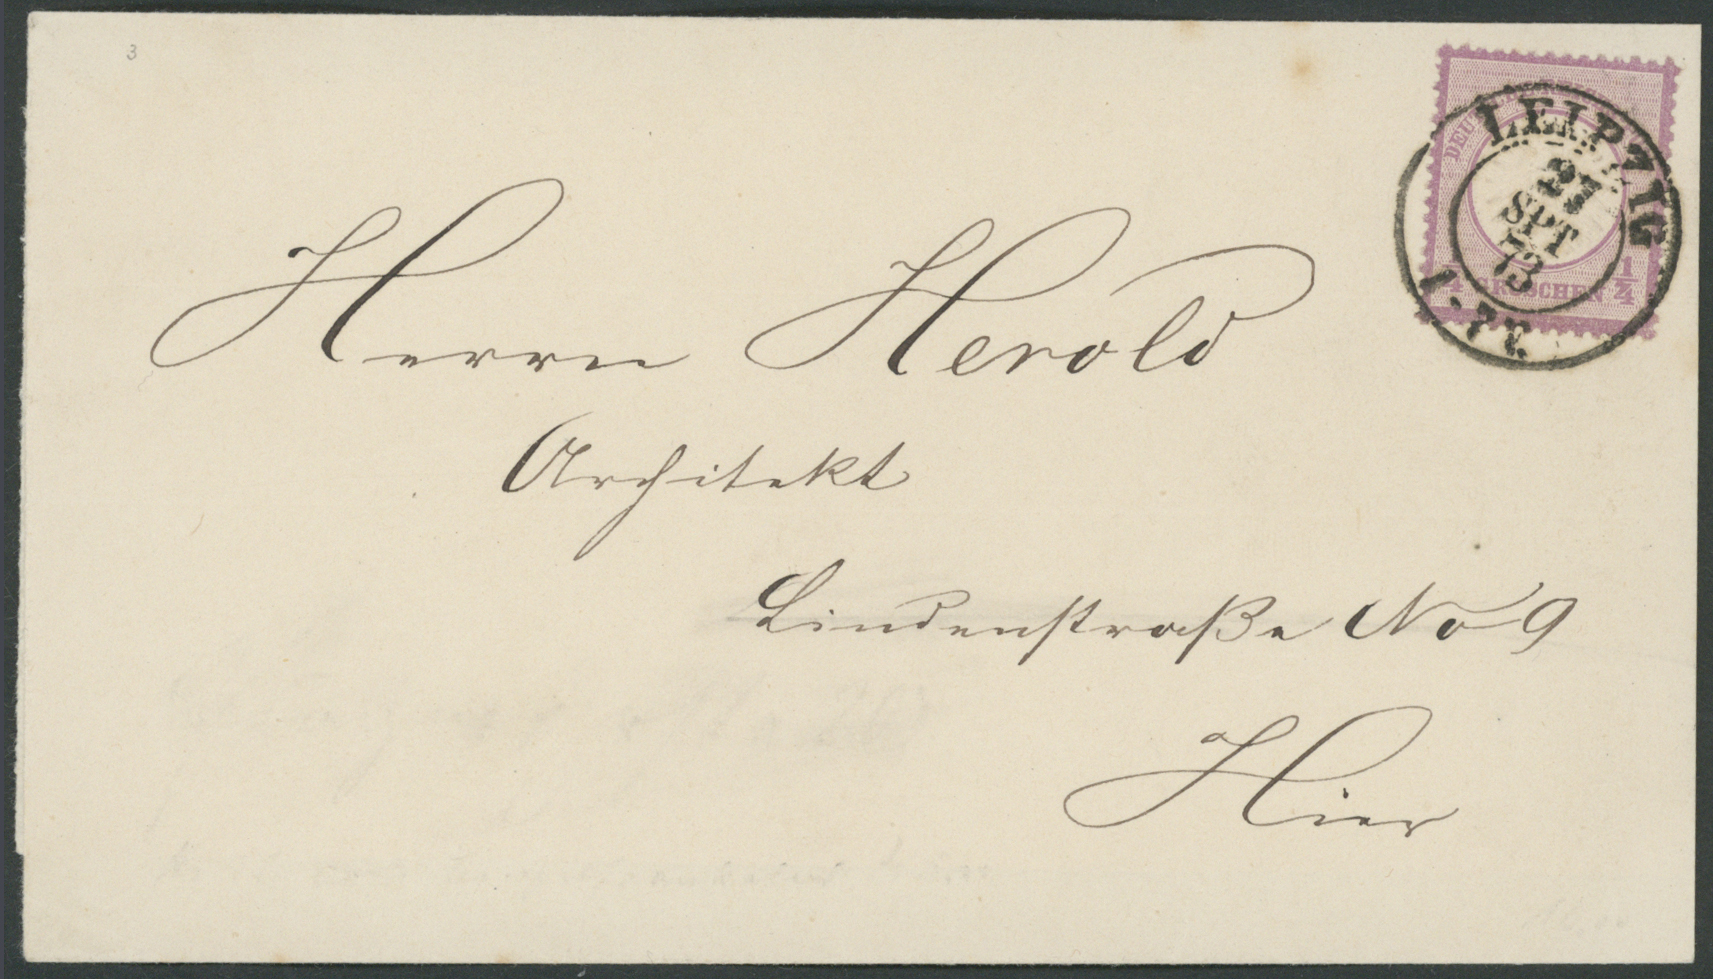 3
DEU
LEIPZIG
27
SPT
73
1/4 GROSCHEN 1/4
Herrn Herold
Architekt
Lindenstraße No 9
Hier